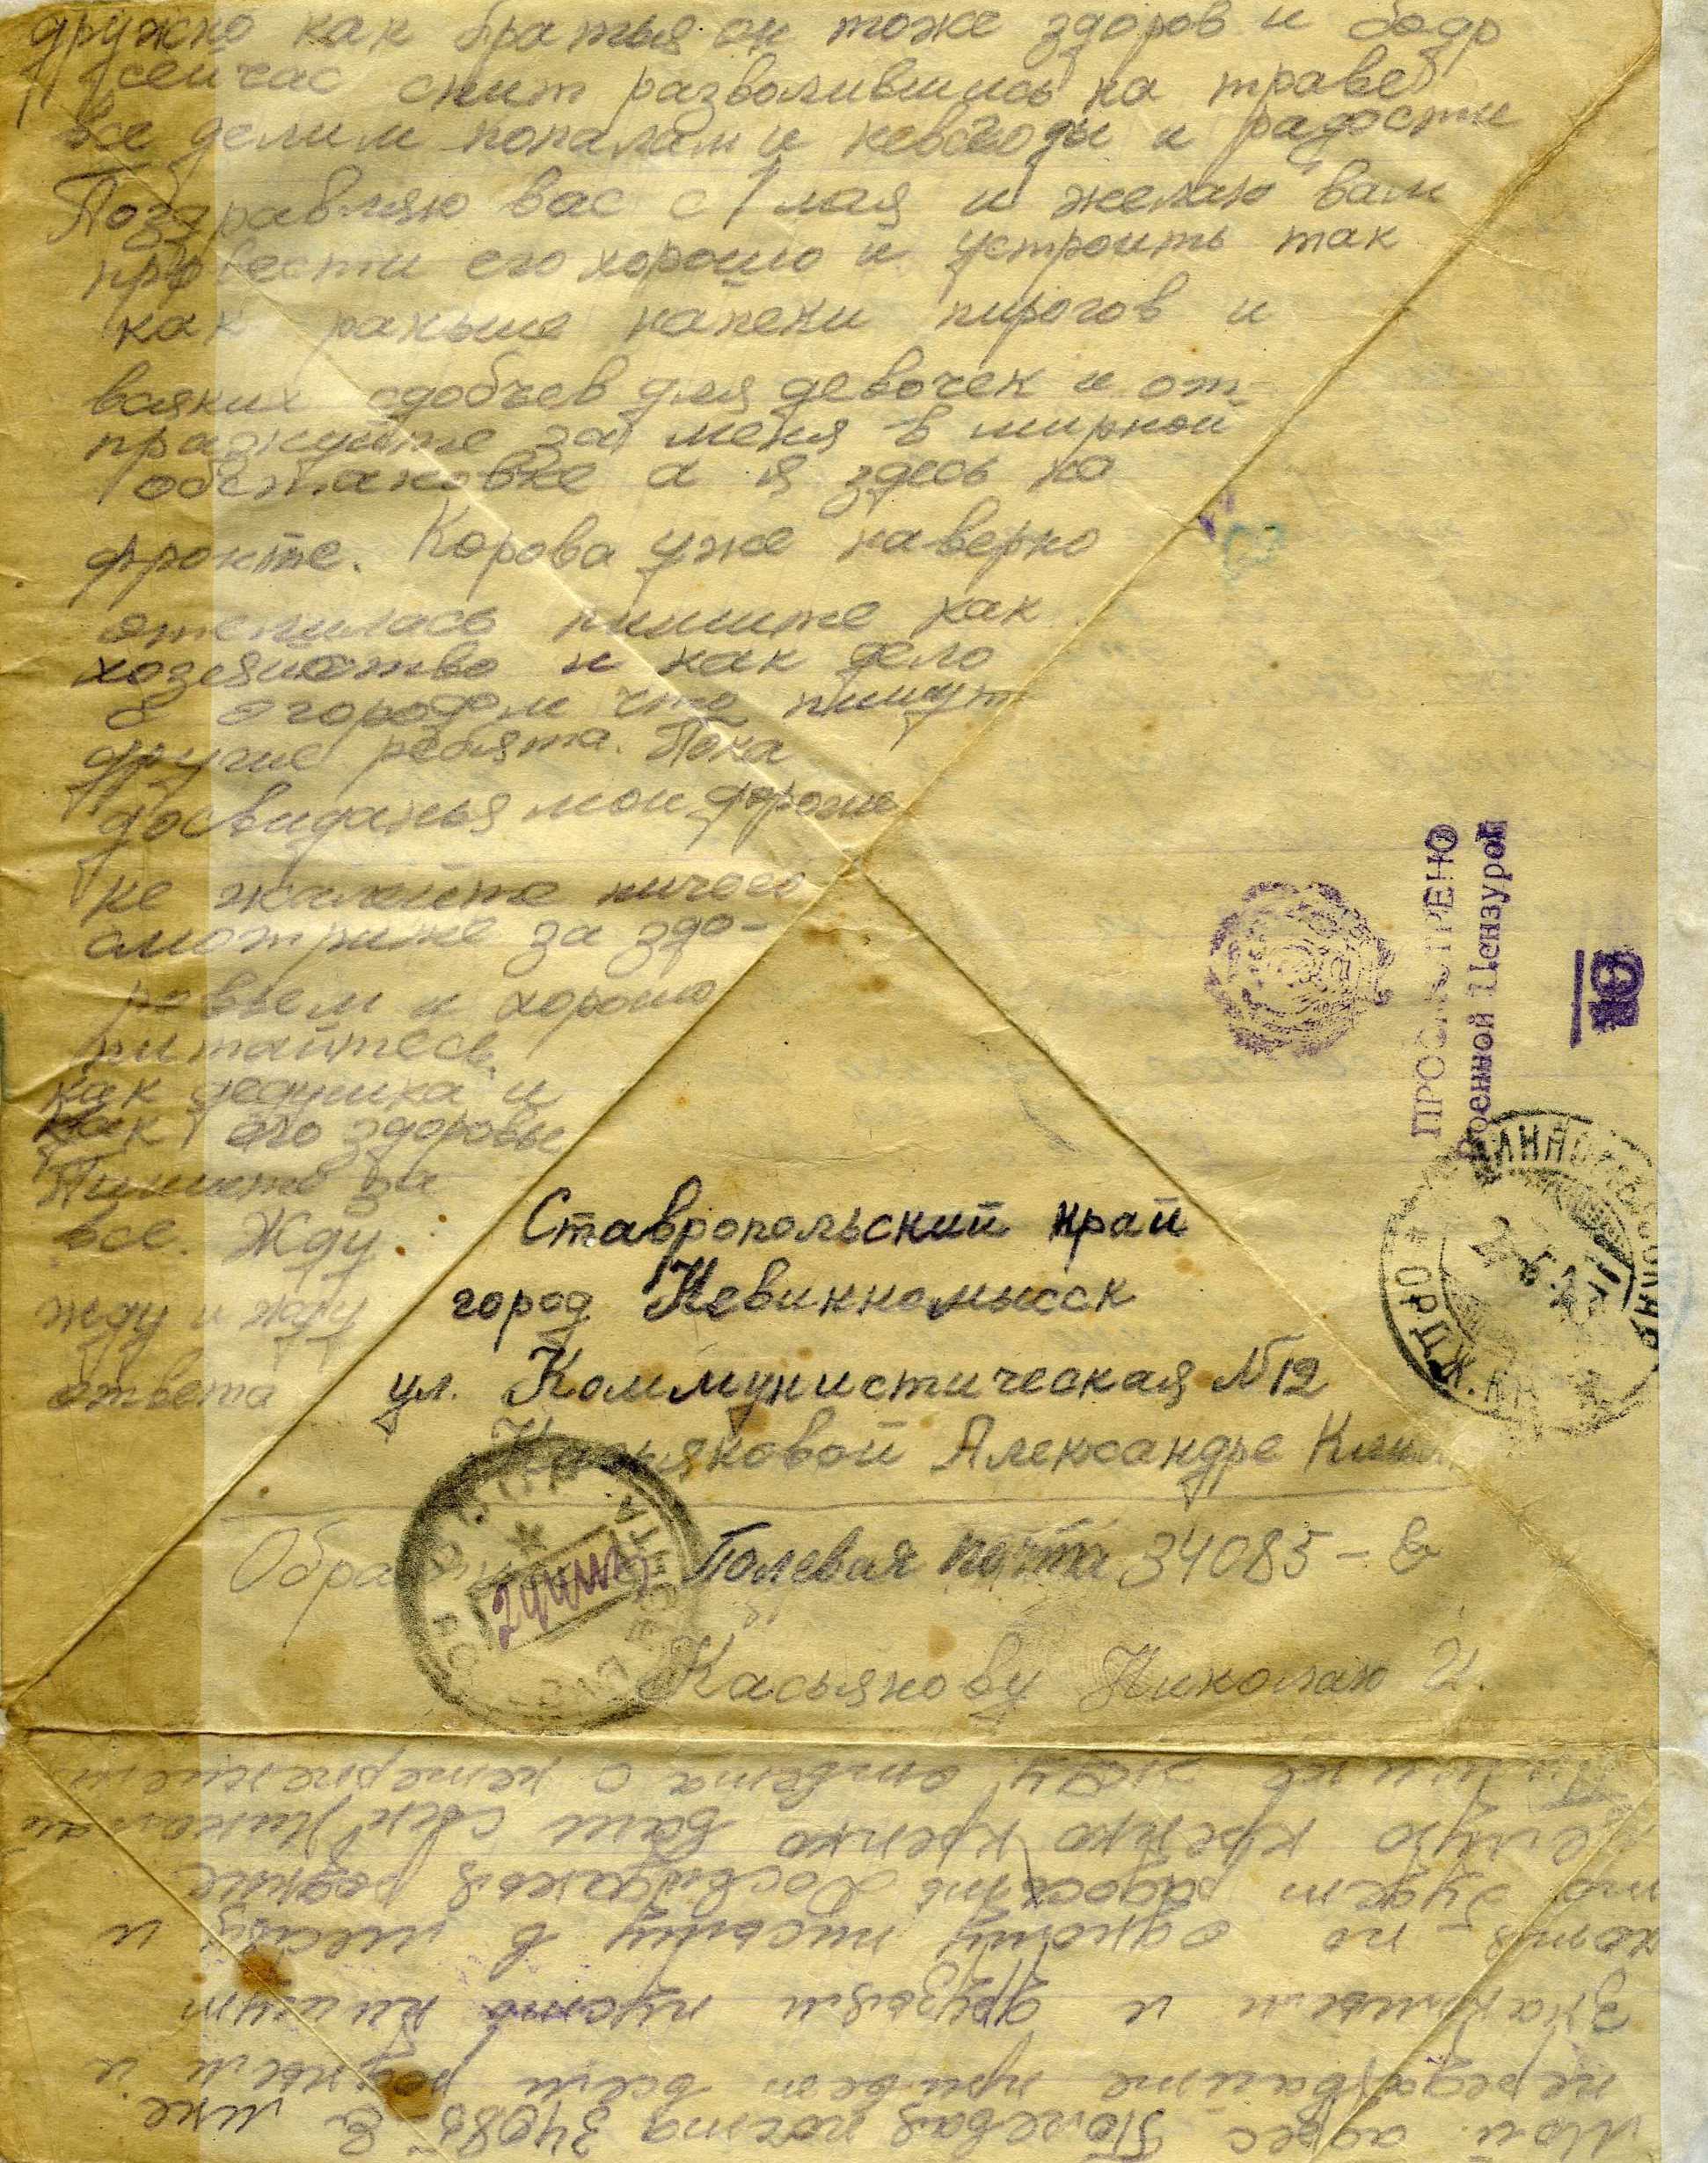 дружно как братья он тоже здоров и бодр
сейчас спит развалившись на траве
все делим попалам и невзгоды и радости
Поздравляю вас с 1 мая и желаю вам
провести его хорошо и устроить так
как раньше напеки пирогов и
всяких сдобчев для девочек и от
празнуйте за меня в мирной
обстановке а я здесь на
фронте. Корова уже наверно
отелилась пишите как
хозяйство и как дело
с огородом что пишут
другие ребята. Пока
досвиданья мои дорогие
не жалейте ничего
смотрите за здо-
ровьем и хорошо
питайтесь.
как дедушка и
как его здоровье
Пишите
все. Жду
жду и жду
ответа
Ставропольский край
город Невинномысск
ул. Коммунистическая №12
Касьяновой Александре
Полевая почта 34085-в
Касьянову Николаю И.
ПРОСМОТРЕНО
Военной Цензурой
Мой адрес Полевая почта 34085 в мне
передавайте привет всем родным и
знакомым и друзьям пусть пишут
хотя-по одному письму в месяц и
то будет радость Досвиданья родные
целую крепко крепко ваш сын Николай
Пишите жду ответа с нетерпением